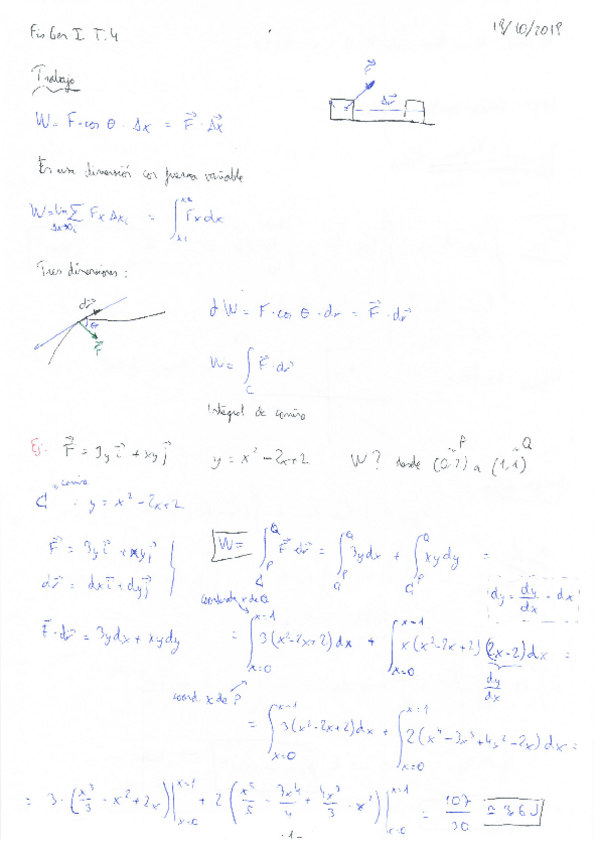 Fis Gen I T.4
19/10/2018
Trabajo
F⃗
Δr⃗
W = F·cos θ · Δx = F⃗ · Δx⃗
En una dimensión con fuerza variable
W = lim Σ Fx Δxi = ∫ Fx dx
Δxi→0 i
x2
x1
Tres dimensiones:
dr⃗
θ
F⃗
dW = F·cos θ · dr = F⃗ · dr⃗
W = ∫ F⃗ · dr⃗
C
Integral de camino
Ej: F⃗ = 3y i⃗ + xy j⃗ y = x² - 2x + 2 W? desde (0,2) a (1,1)
P
Q
C = camino : y = x² - 2x + 2
F⃗ = 3y i⃗ + xy j⃗
dr⃗ = dx i⃗ + dy j⃗
W = ∫ F⃗ · dr⃗ = ∫ 3y dx + ∫ xy dy =
dy = dy/dx · dx
F⃗ · dr⃗ = 3y dx + xy dy
coordenada x de Q
= ∫ 3(x² - 2x + 2) dx + ∫ x(x² - 2x + 2)(2x - 2) dx =
x=1
x=0
dy/dx
coord. x de P
= ∫ 3(x² - 2x + 2) dx + ∫ 2(x⁴ - 3x³ + 4x² - 2x) dx =
x=1
x=0
= 3 · (x³/3 - x² + 2x) |x=1 x=0 + 2 (x⁵/5 - 3x⁴/4 + 4x³/3 - x²) |x=1 x=0 = 107/30 ≃ 3,6 J
- 1 -